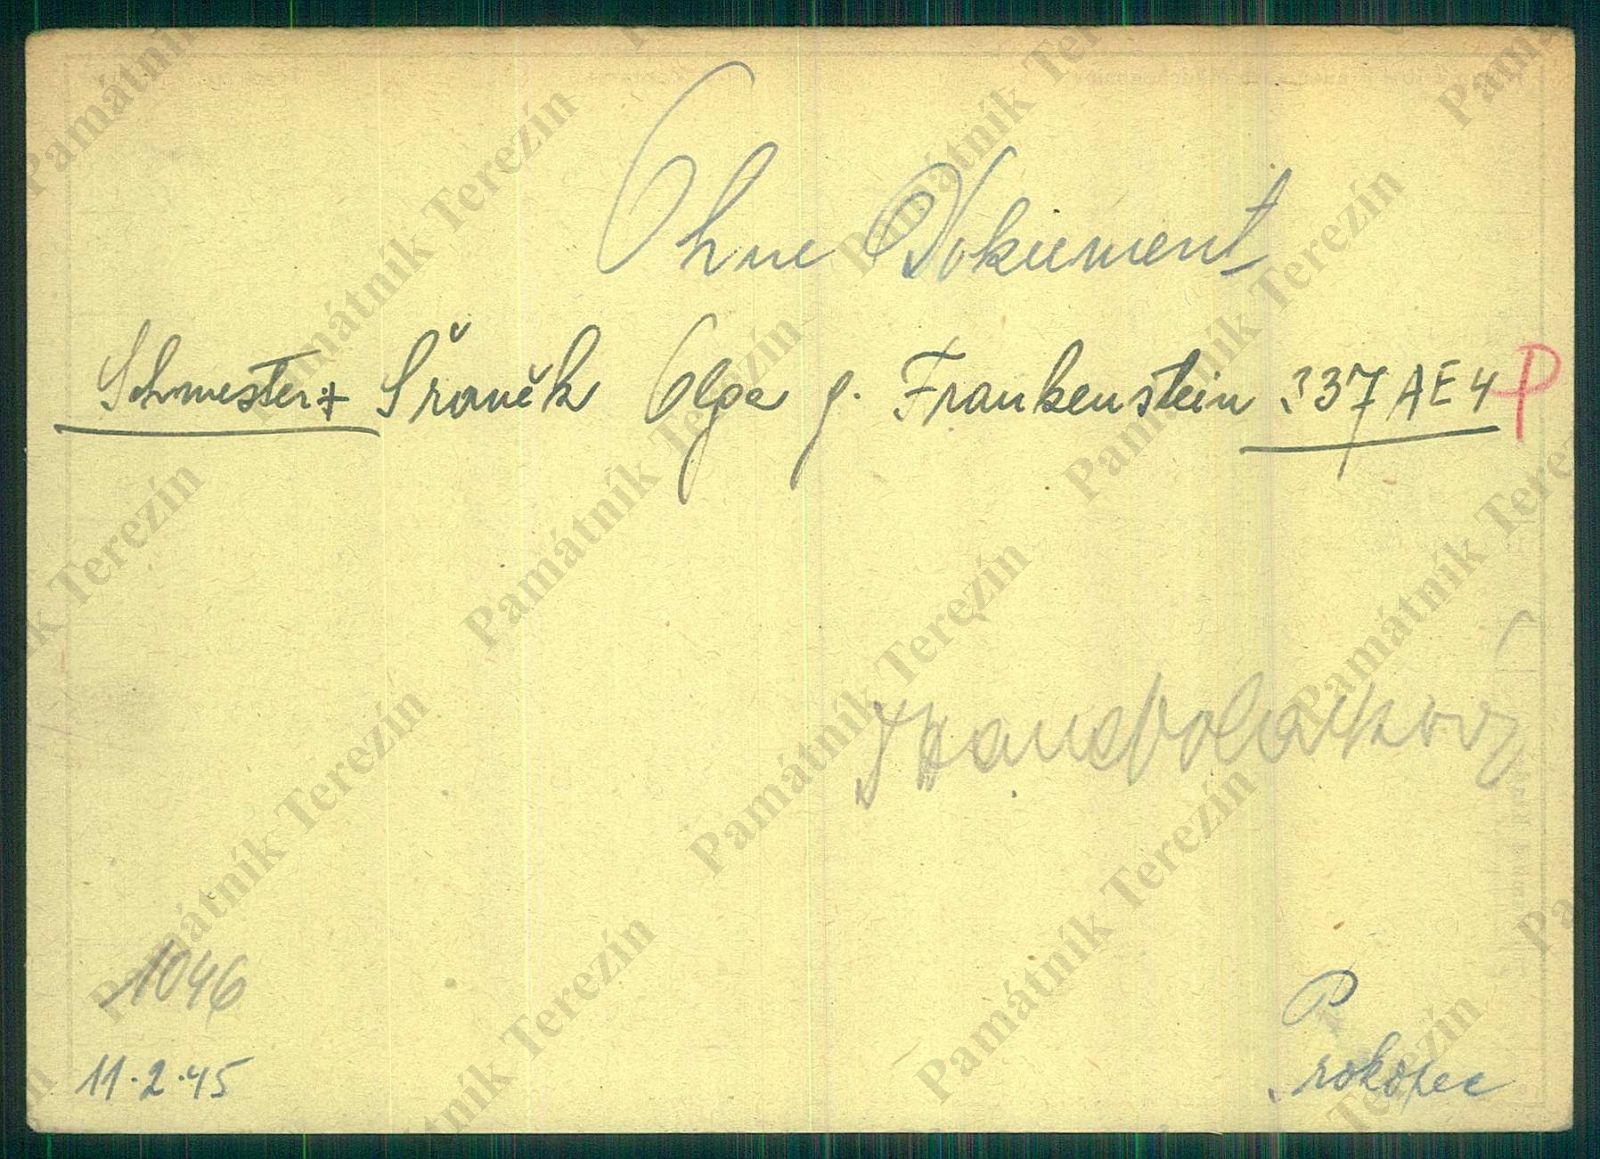 Ohne Dokument
Schwester Šraněk Olga g. Frankenstein 337 AE 4 P
1046
11.2.45
Prokopec
Památník Terezín